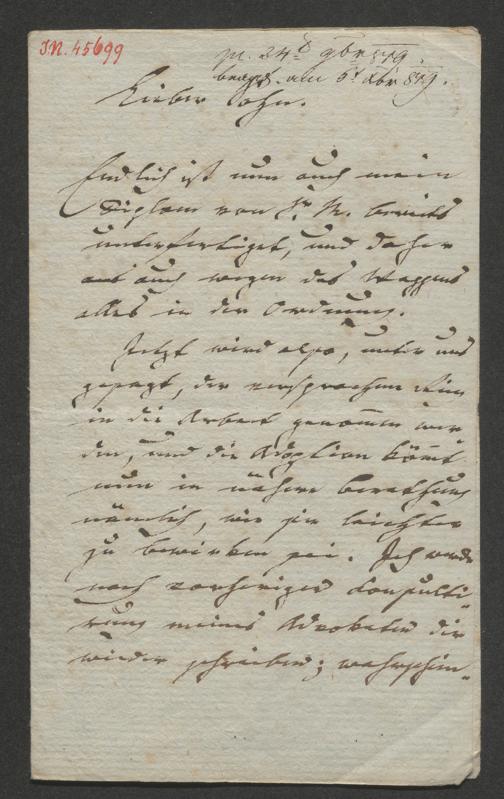 I.N. 45699
pr. 24t 9br 849.
beantw. am 5t Xbr 849.
Lieber Sohn.
Endlich ist nun auch mein
Diplom von Sr. M. bereits
unterfertiget, und daher
auch wegen des Wappens
alles in der Ordnung.
Jetzt wird also, unter uns
gesagt, der versprochene
in die Arbeit genommen wer
den, und die Adoption kömt
nun in nähere Berathung
nämlich, wie sie leichter
zu bewirken sei. Ich werde
nach vorheriger Consulti-
rung meines Advokaten dir
wieder schreiben; wahrschein-